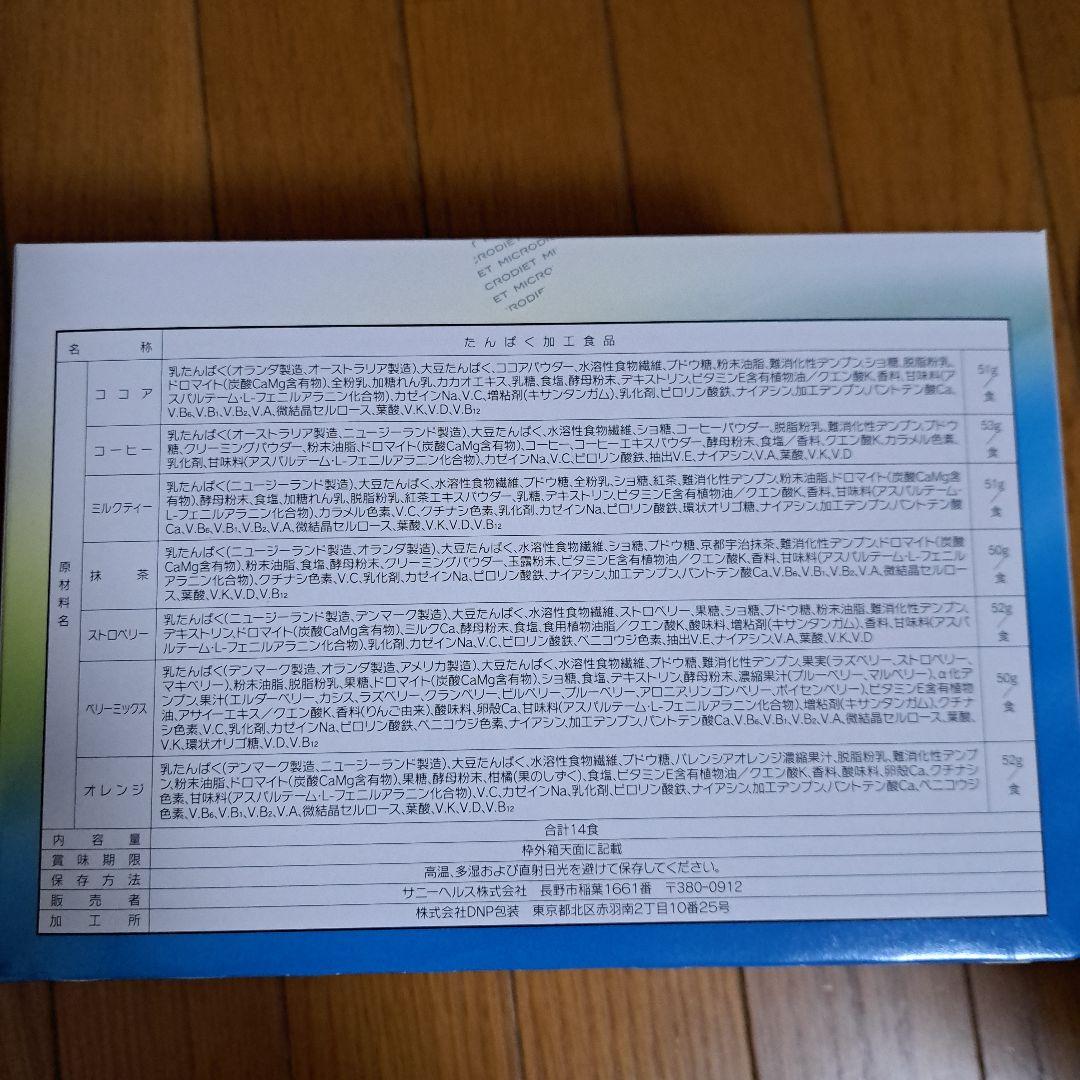 RODIET MICRODI
ET MICRODIET MI
CRODIET MICRO
ET MICRO
RODIE
名称 たんぱく加工食品
原材料名
ココア
乳たんぱく(オランダ製造、オーストラリア製造)、大豆たんぱく、ココアパウダー、水溶性食物繊維、ブドウ糖、粉末油脂、難消化性デンプン、ショ糖、脱脂粉乳、
ドロマイト(炭酸CaMg含有物)、全粉乳、加糖れん乳、カカオエキス、乳糖、食塩、酵母粉末、デキストリン、ビタミンE含有植物油／クエン酸K、香料、甘味料(ア
スパルテーム・L-フェニルアラニン化合物)、カゼインNa、V.C、増粘剤(キサンタンガム)、乳化剤、ピロリン酸鉄、ナイアシン、加工デンプン、パントテン酸Ca、
V.B₆、V.B₁、V.B₂、V.A、微結晶セルロース、葉酸、V.K、V.D、V.B₁₂
51g／食
コーヒー
乳たんぱく(オーストラリア製造、ニュージーランド製造)、大豆たんぱく、水溶性食物繊維、ショ糖、コーヒーパウダー、脱脂粉乳、難消化性デンプン、ブドウ
糖、クリーミングパウダー、粉末油脂、ドロマイト(炭酸CaMg含有物)、コーヒー、コーヒーエキスパウダー、酵母粉末、食塩／香料、クエン酸K、カラメル色素、
乳化剤、甘味料(アスパルテーム・L-フェニルアラニン化合物)、カゼインNa、V.C、ピロリン酸鉄、抽出V.E、ナイアシン、V.A、葉酸、V.K、V.D
53g／食
ミルクティー
乳たんぱく(ニュージーランド製造)、大豆たんぱく、水溶性食物繊維、ブドウ糖、全粉乳、ショ糖、紅茶、難消化性デンプン、粉末油脂、ドロマイト(炭酸CaMg含
有物)、酵母粉末、食塩、加糖れん乳、脱脂粉乳、紅茶エキスパウダー、乳糖、デキストリン、ビタミンE含有植物油／クエン酸K、香料、甘味料(アスパルテーム・
L-フェニルアラニン化合物)、カラメル色素、V.C、クチナシ色素、乳化剤、カゼインNa、ピロリン酸鉄、環状オリゴ糖、ナイアシン、加工デンプン、パントテン酸
Ca、V.B₆、V.B₁、V.B₂、V.A、微結晶セルロース、葉酸、V.K、V.D、V.B₁₂
51g／食
抹茶
乳たんぱく(ニュージーランド製造、オランダ製造)、大豆たんぱく、水溶性食物繊維、ショ糖、ブドウ糖、京都宇治抹茶、難消化性デンプン、ドロマイト(炭酸
CaMg含有物)、粉末油脂、食塩、酵母粉末、クリーミングパウダー、玉露粉末、ビタミンE含有植物油／クエン酸K、香料、甘味料(アスパルテーム・L-フェニル
アラニン化合物)、クチナシ色素、V.C、乳化剤、カゼインNa、ピロリン酸鉄、ナイアシン、加工デンプン、パントテン酸Ca、V.B₆、V.B₁、V.B₂、V.A、微結晶セルロー
ス、葉酸、V.K、V.D、V.B₁₂
50g／食
ストロベリー
乳たんぱく(ニュージーランド製造、デンマーク製造)、大豆たんぱく、水溶性食物繊維、ストロベリー、果糖、ショ糖、ブドウ糖、粉末油脂、難消化性デンプン、
デキストリン、ドロマイト(炭酸CaMg含有物)、ミルクCa、酵母粉末、食塩、食用植物油脂／クエン酸K、酸味料、増粘剤(キサンタンガム)、香料、甘味料(アスパ
ルテーム・L-フェニルアラニン化合物)、乳化剤、カゼインNa、V.C、ピロリン酸鉄、ベニコウジ色素、抽出V.E、ナイアシン、V.A、葉酸、V.K、V.D
52g／食
ベリーミックス
乳たんぱく(デンマーク製造、オランダ製造、アメリカ製造)、大豆たんぱく、水溶性食物繊維、ブドウ糖、難消化性デンプン、果実(ラズベリー、ストロベリー、
マキベリー)、粉末油脂、脱脂粉乳、果糖、ドロマイト(炭酸CaMg含有物)、ショ糖、食塩、デキストリン、酵母粉末、濃縮果汁(ブルーベリー、マルベリー)、α化デ
ンプン、果汁(エルダーベリー、カシス、ラズベリー、クランベリー、ビルベリー、ブルーベリー、アロニア、リンゴンベリー、ボイセンベリー)、ビタミンE含有植物
油、アサイーエキス／クエン酸K、香料(りんご由来)、酸味料、卵殻Ca、甘味料(アスパルテーム・L-フェニルアラニン化合物)、増粘剤(キサンタンガム)、クチナ
シ色素、V.C、乳化剤、カゼインNa、ピロリン酸鉄、ベニコウジ色素、ナイアシン、加工デンプン、パントテン酸Ca、V.B₆、V.B₁、V.B₂、V.A、微結晶セルロース、葉酸、
V.K、環状オリゴ糖、V.D、V.B₁₂
50g／食
オレンジ
乳たんぱく(デンマーク製造、ニュージーランド製造)、大豆たんぱく、水溶性食物繊維、ブドウ糖、バレンシアオレンジ濃縮果汁、脱脂粉乳、難消化性デンプ
ン、粉末油脂、ドロマイト(炭酸CaMg含有物)、果糖、酵母粉末、柑橘(果のしずく)、食塩、ビタミンE含有植物油／クエン酸K、香料、酸味料、卵殻Ca、クチナシ
色素、甘味料(アスパルテーム・L-フェニルアラニン化合物)、V.C、カゼインNa、乳化剤、ピロリン酸鉄、ナイアシン、加工デンプン、パントテン酸Ca、ベニコウジ
色素、V.B₆、V.B₁、V.B₂、V.A、微結晶セルロース、葉酸、V.K、V.D、V.B₁₂
52g／食
内容量 合計14食
賞味期限 枠外箱天面に記載
保存方法 高温、多湿および直射日光を避けて保存してください。
販売者 サニーヘルス株式会社 長野市稲葉1661番 〒380-0912
加工所 株式会社DNP包装 東京都北区赤羽南2丁目10番25号